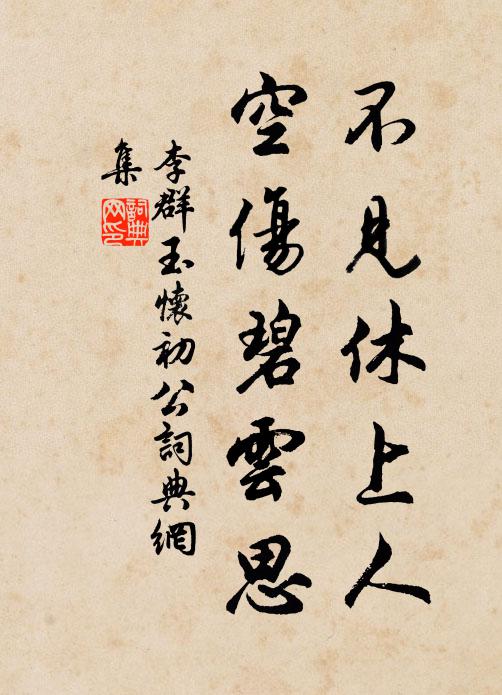 不見休上人
空傷碧雲思
李群玉懷初公詞典網
集
詞典
网印